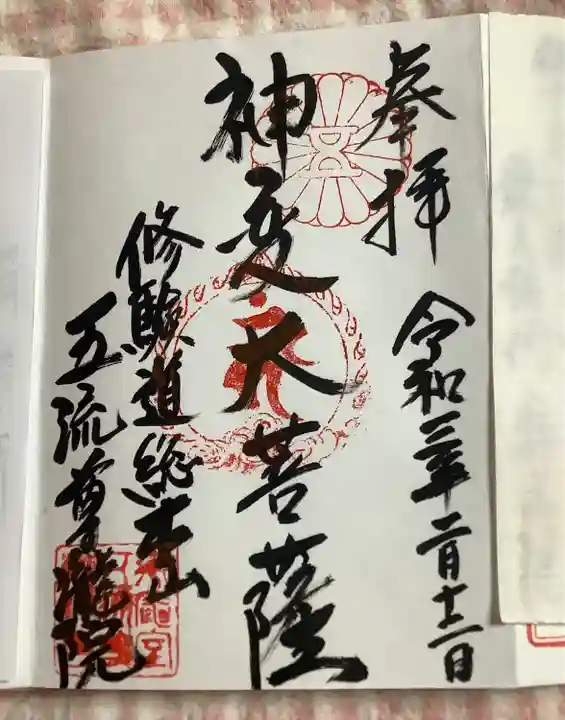 奉拝
令和三年二月十二日
神変大菩薩
修験道総本山
五流尊瀧院